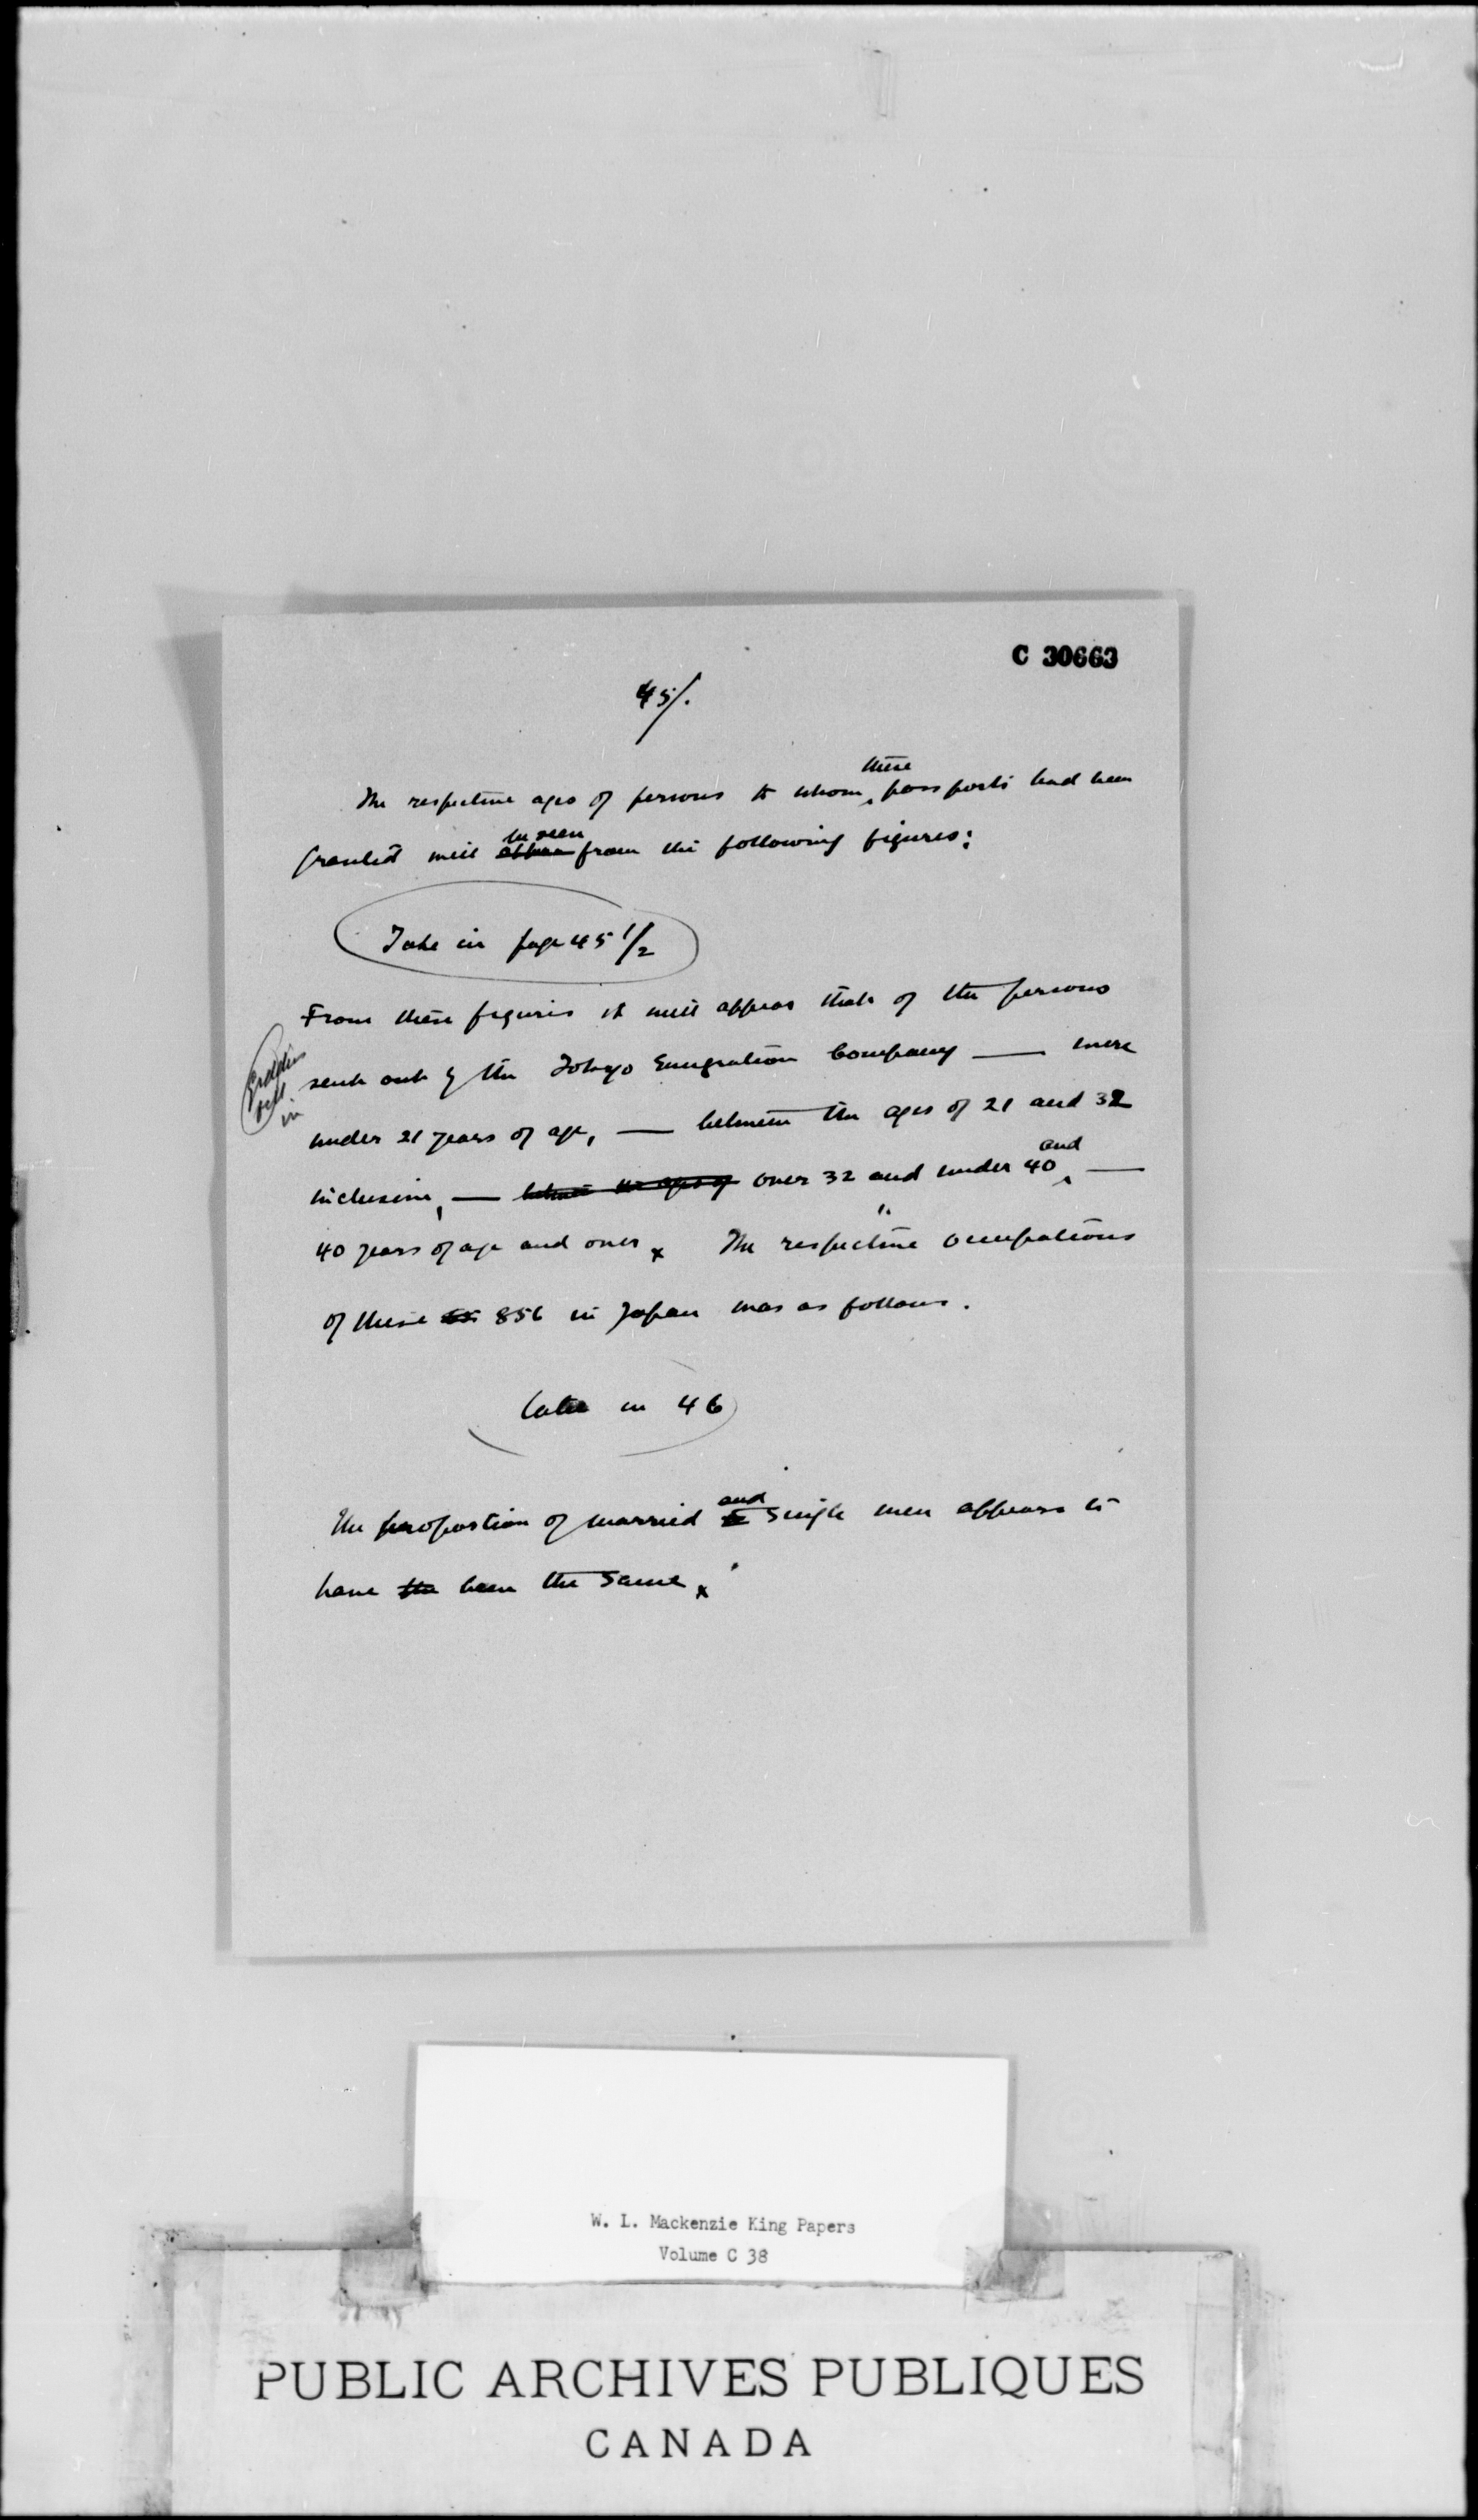 C 30663
45/.
these
The respective ages of persons to whom passports had been
be seen
granted will from the following figures:
Take in page 45 1/2
From these figures it will appear that of the persons
sent out by the Tokyo Emigration Company — were
fill
in
under 21 years of age, — between the ages of 21 and 32
and
inclusive, — between the ages of over 32 and under 40, —
40 years of age and over x The respective occupations
of these 856 in Japan was as follows.
in 46
and
The proportion of married single men appears to
have the been the same x
W. L. Mackenzie King Papers
Volume C 38
PUBLIC ARCHIVES PUBLIQUES
CANADA